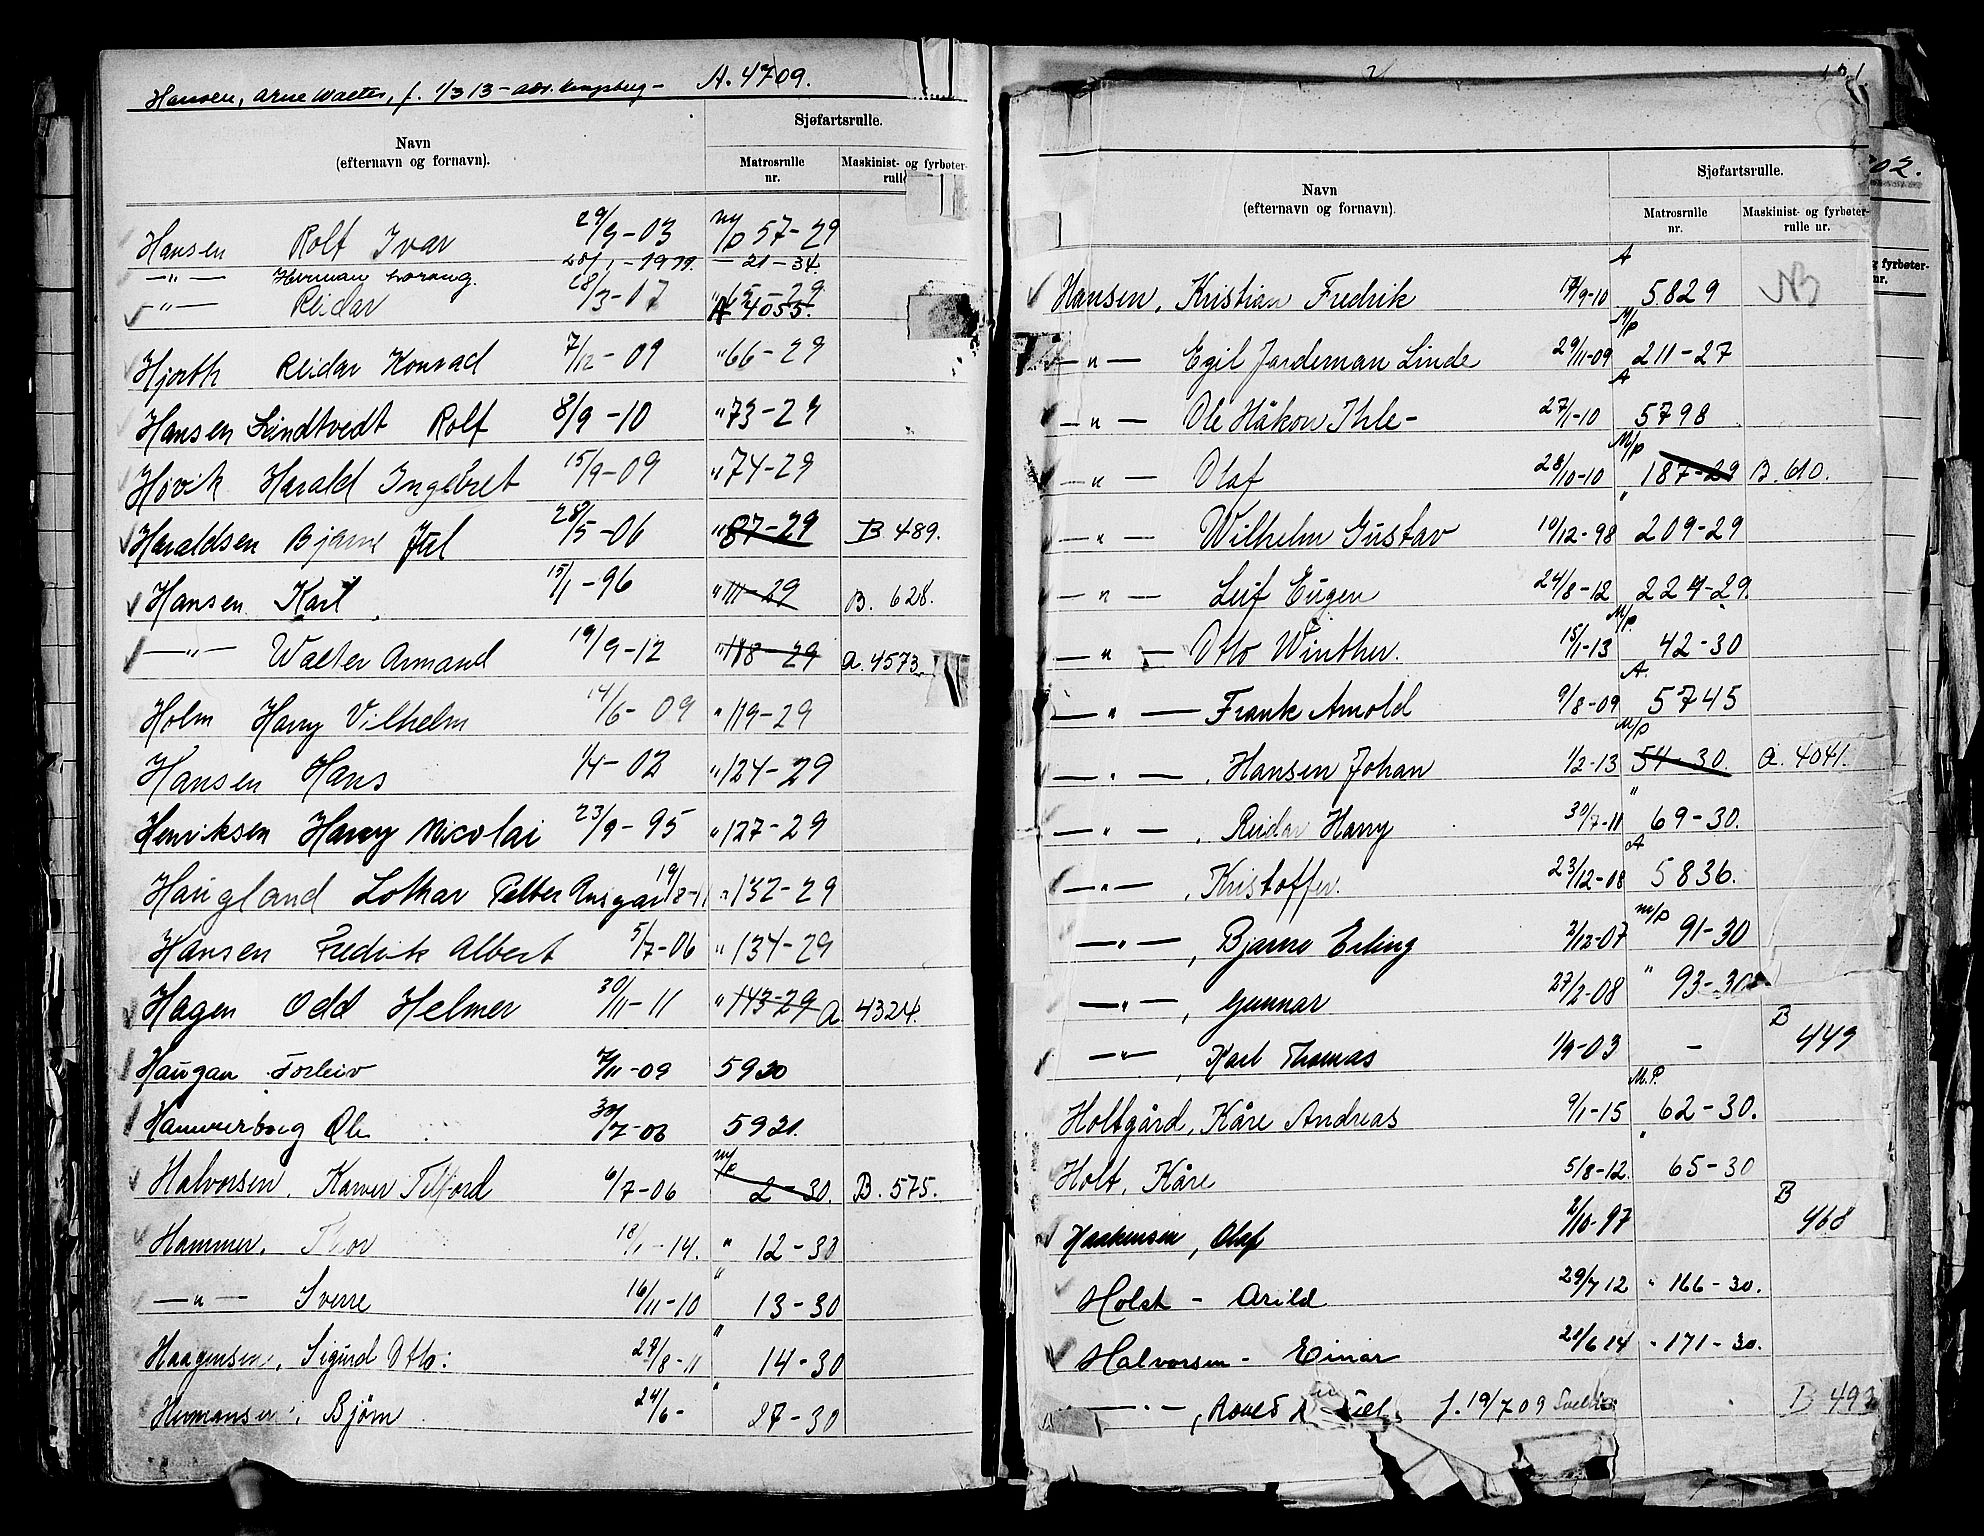 Hansen, Arne Walter, f. 1/3 13 - A. 4709.
Sjøfartsrulle.
Navn
(efternavn og fornavn).
Matrosrulle
nr.
Maskinist- og fyrbøter-
Hansen Rolf Ivar 29/9-03 M/p 57-29
-"- Herman 20/1-1911. - 21-34.
-"- Reidar 28/3-07 "65-29 A 4055.
Hjorth Reidar Konrad 7/12-09 "66-29
Hansen Lindtvedt Rolf 8/9-10 "73-29
Høvik Harald Ingebret 15/9-09 "74-29
Haraldsen Bjarne Jul 28/5-06 "87-29 B 489.
Hansen Karl 15/1-96 "111-29 B. 628.
-"- Walter Armand 19/9-12 "118-29 A. 4573
Holm Harry Vilhelm 14/6-09 "119-29
Hansen Hans 1/4-02 "124-29
Henriksen Harry Nicolai 23/9-95 "127-29
Haugland Lothar Petter Ansgar 19/8-11 "132-29
Hansen Fredrik Albert 5/7-06 "134-29
Hagen Odd Helmer 30/11-11 "143-29 A. 4324.
Haugan Torleiv 7/11-09 5930
Ole 5931.
Halvorsen, Telford 6/7-06 M/p 2-30. B. 575.
Hammer, Thor 18/1-14. " 12-30
-"- Sverre 16/11-10 " 13-30
Haagensen, Sigurd Otto: 28/8-11 " 14-30
Hermansen, Bjørn 24/6- " 27-30
02.
Sjøfartsrulle.
Navn
(efternavn og fornavn).
Matrosrulle
nr.
Maskinist- og fyrbøter-
rulle nr.
g fyrbøter-
nr.
Hansen, Kristian Fredrik 17/9-10 A 5829 NB
-"- Egil Jardeman Linde 29/11-09 M/p 211-27
-"- Ole Håkon Ihle- 27/1-10 A 5798
-"- Olaf 28/10-10 M/p 187-29 B. 610.
-"- Wilhelm Gustav 10/12-98 " 209-29
-"- Leif Eugen 24/8-12 224-29
-"- Otto Winther. 15/1-13 M/p. 42-30
-"- Frank Arnold 9/8-09 A. 5745
-"- , Hansen Johan 1/2-13 M/p 54-30. A. 4041.
-"- , Reidar Harry 30/7-11 " 69-30.
-"- , Kristoffer. 23/12-08 A 5836.
-"- , Bjarne Erling 2/12-07 M/p 91-30
-"- , Gunnar 27/2-08 " 93-30
-"- , Karl Thomas 1/9-03 - B 449
Holtgård, Kåre Andreas 9/1-15 M.P. 62-30.
Holt, Kåre 5/8-12. " 65-30
Haakensen, Olaf 2/10-97 B 468
Holst - Arild 29/7 12 " 166-30.
Halvorsen - Einar 21/6 14 " 171-30.
-"- , f. 19/7 09 B 493